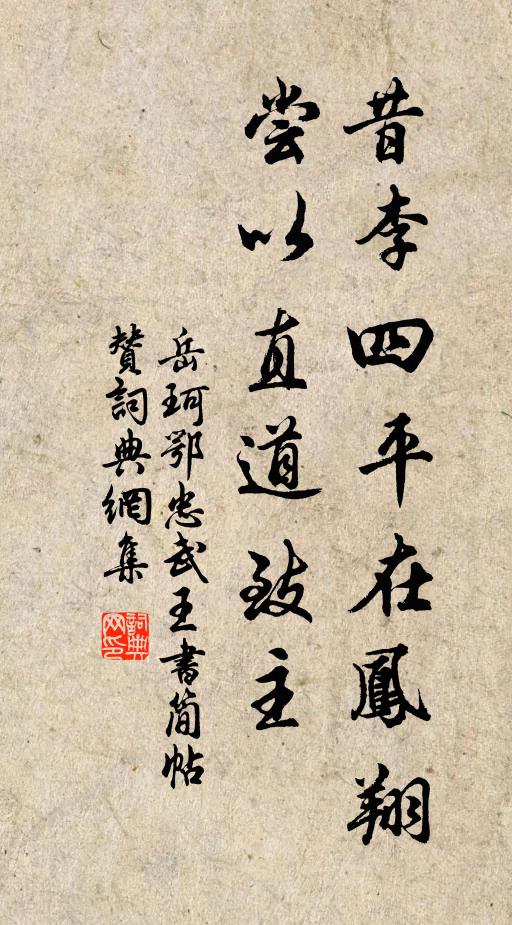 昔李四平在鳳翔
尝以直道致主
岳珂鄂忠武王書简帖
贊詞典網集
詞典网印